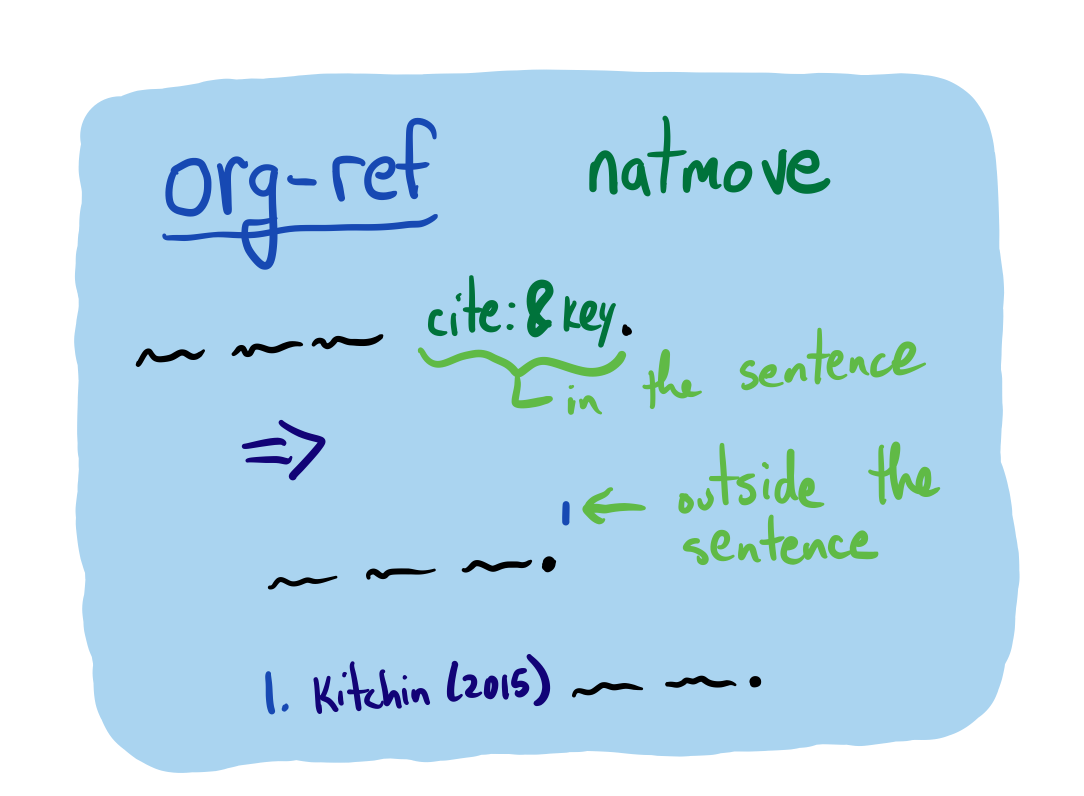 org-ref natmove
cite:&key.
in the sentence
⇒
1 ← outside the
sentence
.
1. Kitchin (2015) .